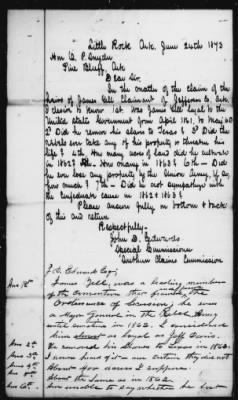 Little Rock Ark. June 24th 1873
Hon. O. P. Snyder
Pine Bluff, Ark
Dear Sir.
In the matter of the claim of the
heirs of James Yell Claimant of Jefferson Co. Ark.
I desire to know 1st. Was James Yell loyal to the
United States Government from April 1861, to May 65
2d Did he remove his slaves to Texas & 3d Did the
rebels ever take any of his property or threaten his
life & 4th How many acres of land did he cultivate
in 1862? 5th How many in 1863? 6th - Did
he ever lose any property by the Union Army, if so,
how much? 7th - Did he not sympathize with
the Confederate cause in 1862 & 1863?
Please answer fully on bottom & back
of this and return
Respectfully-
John D. Edwards
Special Commissioner
Southern Claims Commission
J. D. Edwards Esq;
Ans 1st.
James Yell, was a leading member
of the convention that
Ordinance of Secession, he was
a Major General in the Rebel Army
until sometime in 1862. I considered
him as loyal as Jeff. Davis.
Ans 2d
He removed his slaves to Texas in 1863.
Ans 3d
I never heard of it - am certain they did not
Ans 4th
About 400 acres I suppose.
Ans 5th
About the same as in 1862.
Ans 6th.
Am unable to say whether he lost